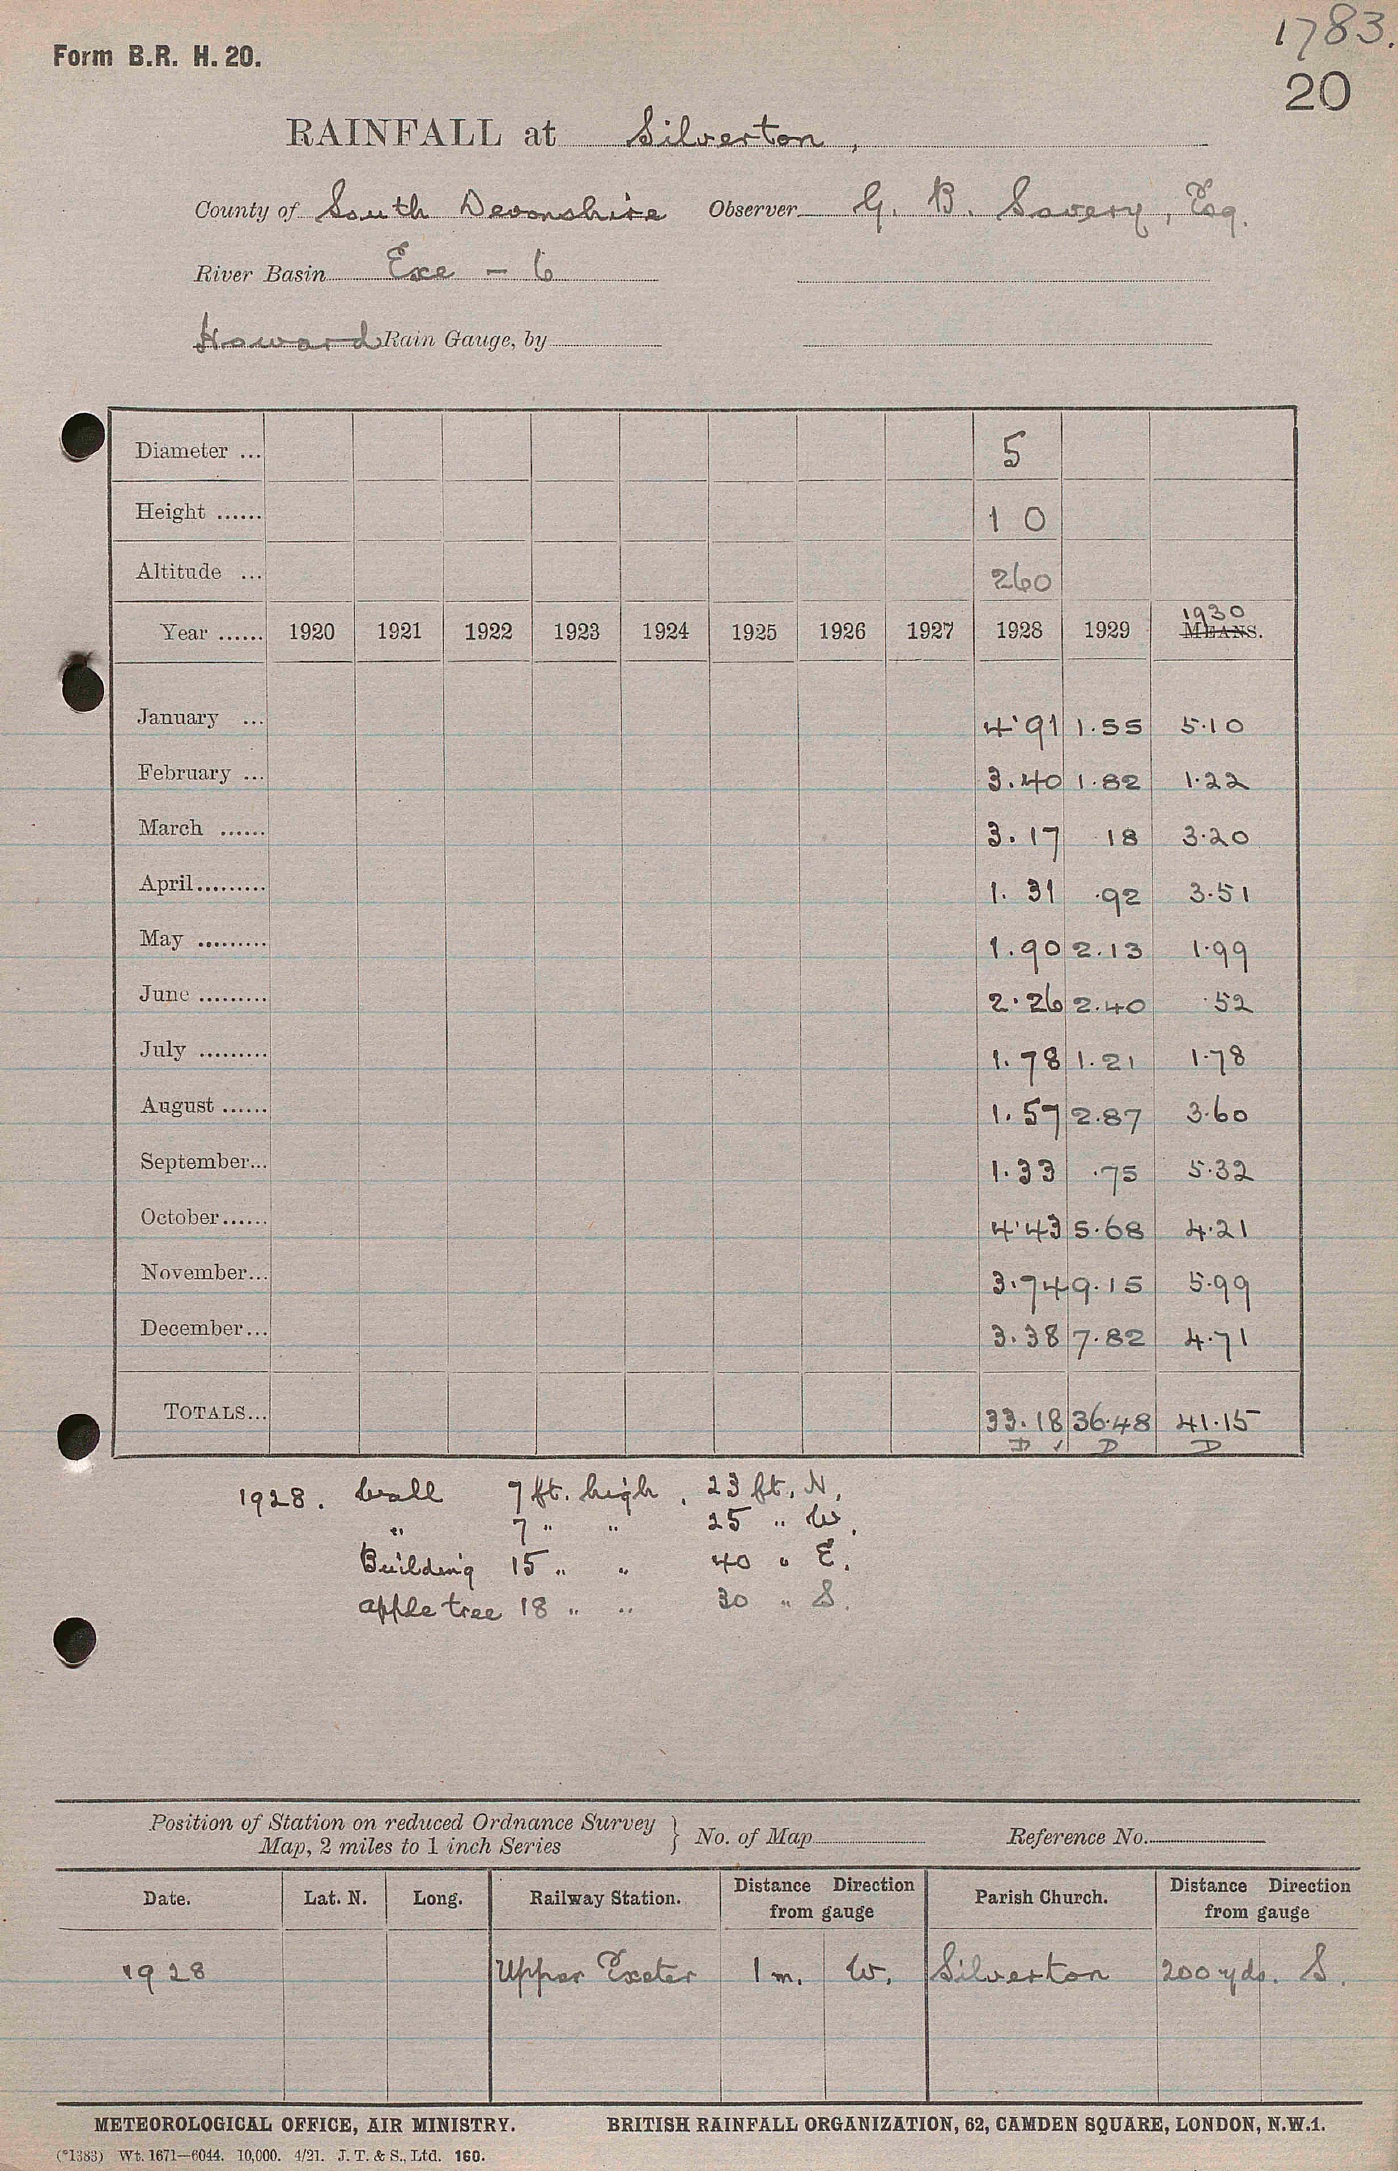 1783.
Form B.R. H. 20.
20
RAINFALL at Silverton,
County of South Devonshire Observer G. B. Savery, Esq.
River Basin Exe – 6
Howard Rain Gauge, by
Diameter ... 5
Height ...... 1 0
Altitude ... 260
Year ...... 1920 1921 1922 1923 1924 1925 1926 1927 1928 1929 1930 MEANS.
January ... 4·91 1.55 5·10
February ... 3.40 1.82 1·22
March ...... 3.17 18 3·20
April......... 1.31 ·92 3·51
May ......... 1.90 2.13 1·99
June ......... 2·26 2.40 ·52
July ......... 1.78 1.21 1·78
August ...... 1.57 2.87 3·60
September... 1.33 ·75 5·32
October...... 4·43 5·68 4·21
November... 3.74 9.15 5·99
December... 3.38 7.82 4·71
TOTALS... 33.18 36·48 41·15
D ✓ D D
1928. Wall 7 ft. high, 23 ft. N.
" 7 " " 25 " W.
Building 15 " " 40 " E.
apple tree 18 " " 30 " S.
Position of Station on reduced Ordnance Survey
Map, 2 miles to 1 inch Series } No. of Map Reference No.
Date. Lat. N. Long. Railway Station. Distance Direction from gauge Parish Church. Distance Direction from gauge
1928 Upper Exeter 1 m. W. Silverton 200 yds. S.
METEOROLOGICAL OFFICE, AIR MINISTRY. BRITISH RAINFALL ORGANIZATION, 62, CAMDEN SQUARE, LONDON, N.W.1.
(*1383) Wt. 1671—6044. 10,000. 4/21. J. T. & S., Ltd. 160.